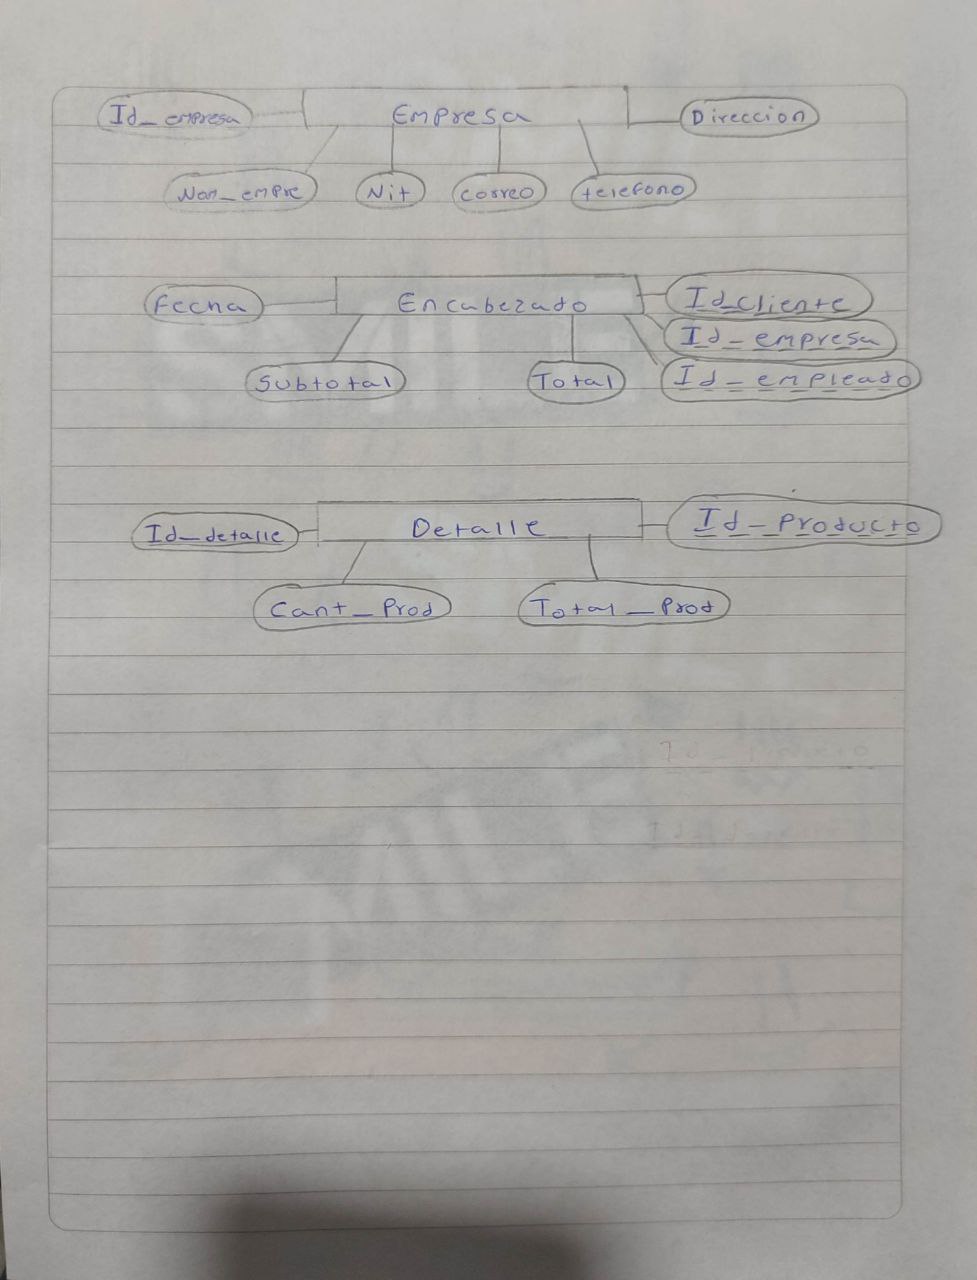 Id_empresa Empresa Direccion
Nom_empre Nit correo telefono
Fecha Encabezado Id_cliente
Id_empresa
Subtotal Total Id_empleado
Id_detalle Detalle Id_Producto
Cant_Prod Total_Prod